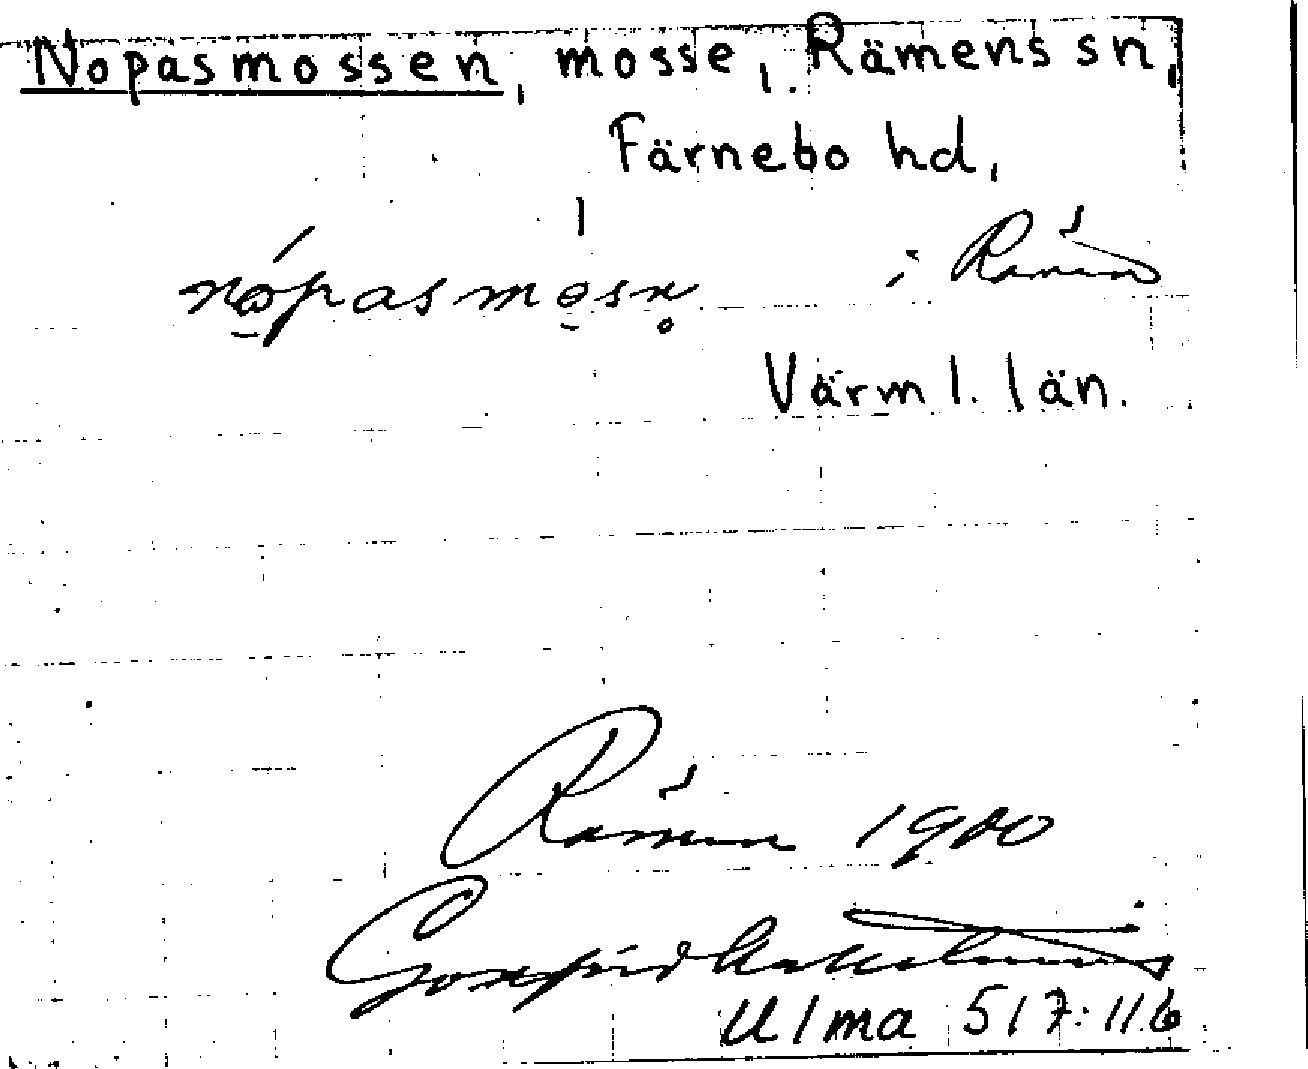 Nopasmossen, mosse, Rämens sn,
Färnebo hd,
nópasmosn i Rämen
Värml. län.
Rämen 1900
Gottfrid Kallstenius
Ulma 517:116